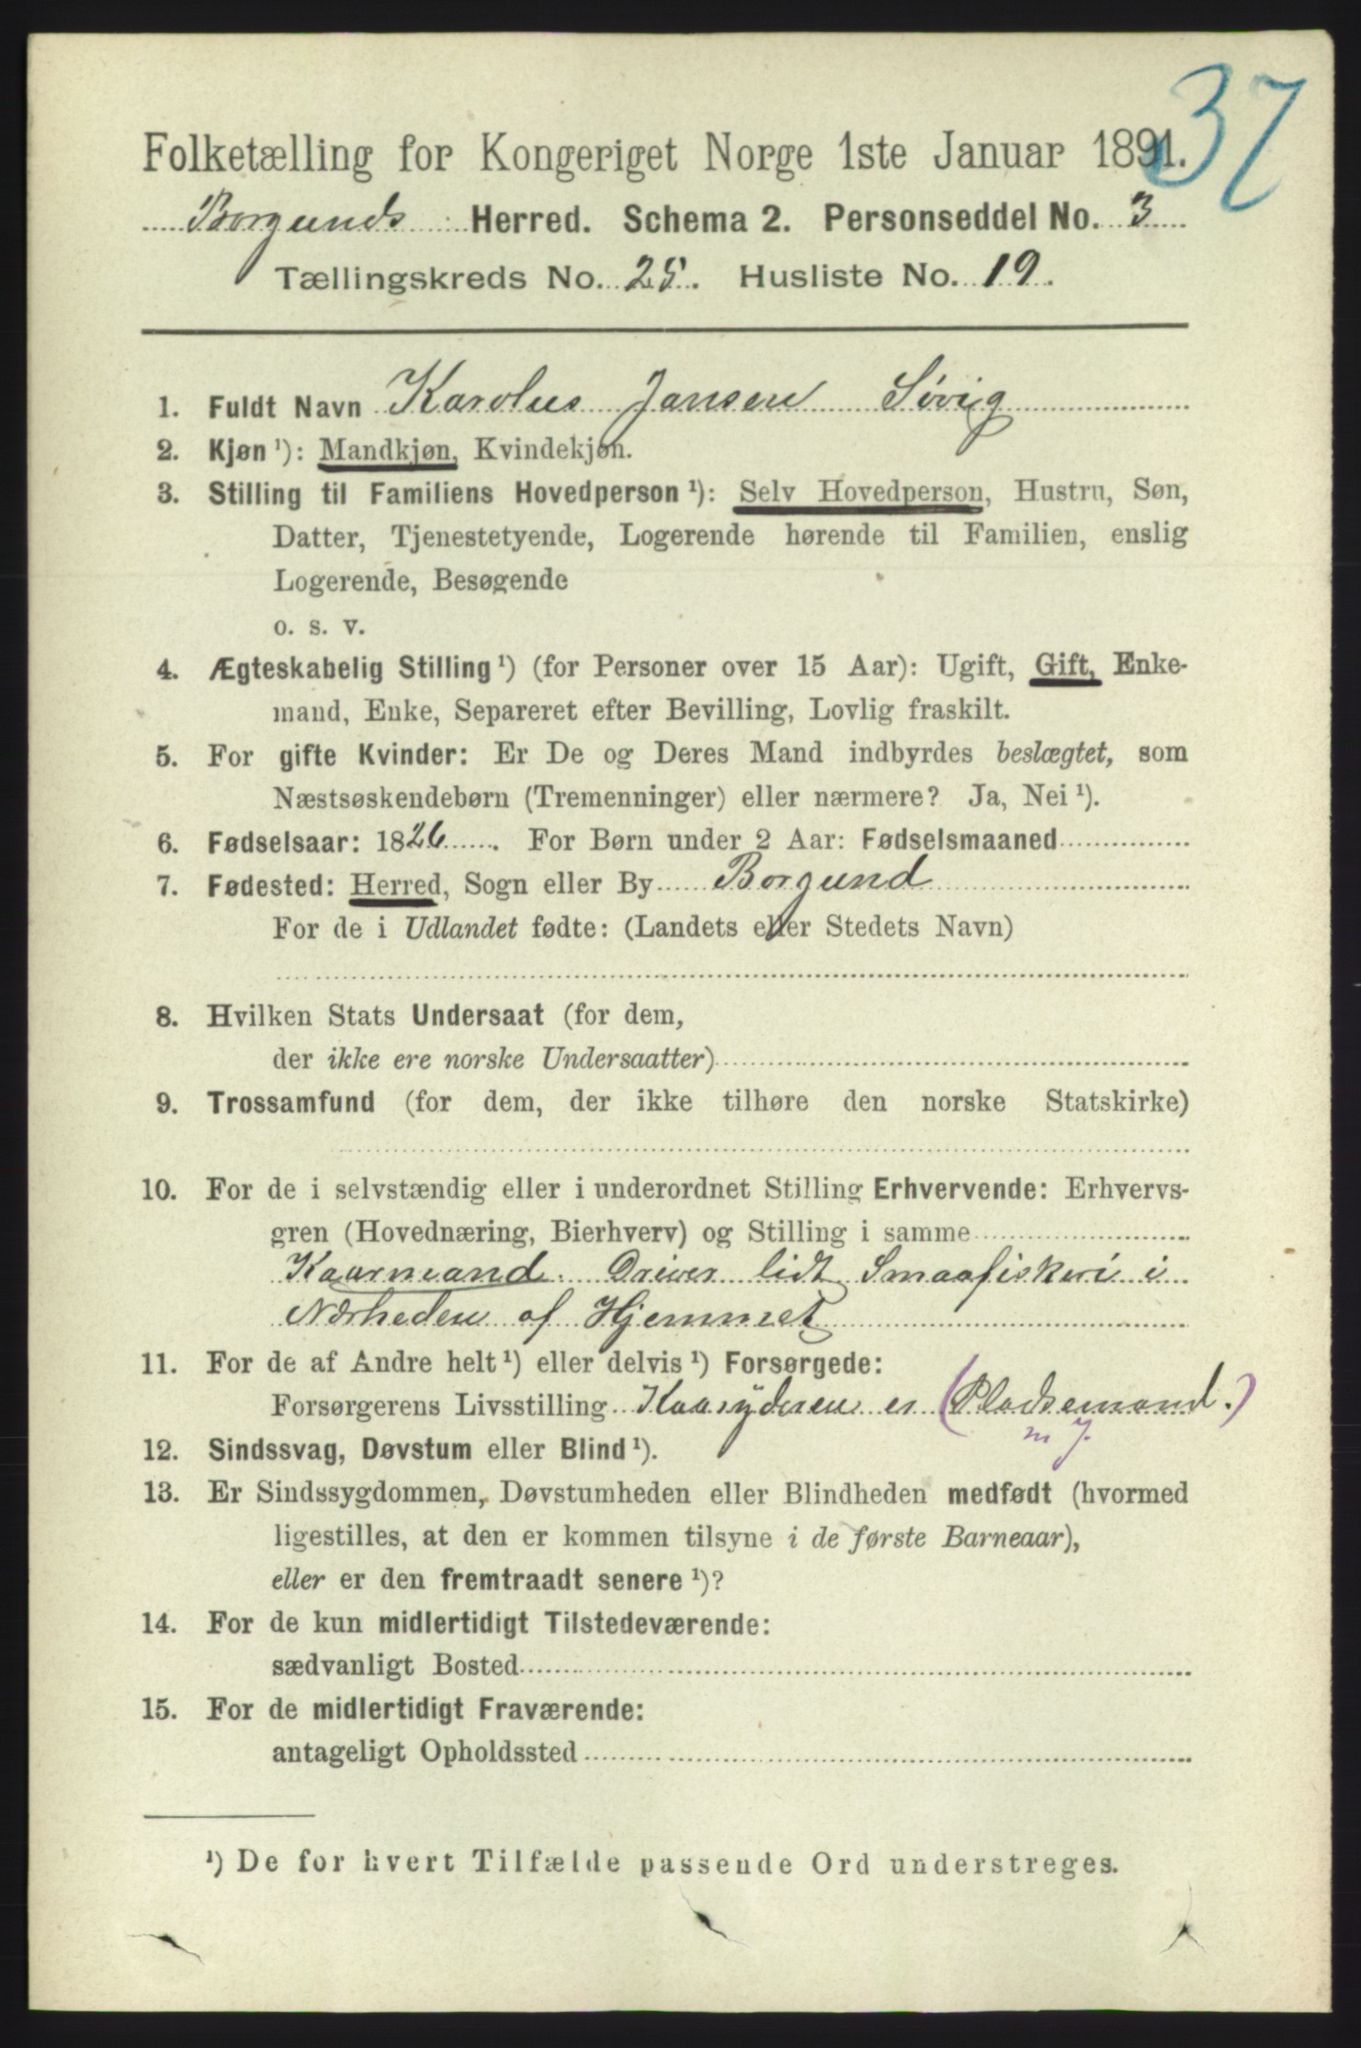 37
Folketælling for Kongeriget Norge 1ste Januar 1891.
Borgunds Herred. Schema 2. Personseddel No. 3
Tællingskreds No. 25. Husliste No. 19.
1. Fuldt Navn Karolus Jansen Søvig
2. Kjøn ¹): Mandkjøn, Kvindekjøn.
3. Stilling til Familiens Hovedperson ¹): Selv Hovedperson, Hustru, Søn,
Datter, Tjenestetyende, Logerende hørende til Familien, enslig
Logerende, Besøgende
o. s. v.
4. Ægteskabelig Stilling ¹) (for Personer over 15 Aar): Ugift, Gift, Enke-
mand, Enke, Separeret efter Bevilling, Lovlig fraskilt.
5. For gifte Kvinder: Er De og Deres Mand indbyrdes beslægtet, som
Næstsøskendebørn (Tremenninger) eller nærmere? Ja, Nei ¹).
6. Fødselsaar: 1826. For Børn under 2 Aar: Fødselsmaaned
7. Fødested: Herred, Sogn eller By Borgund
For de i Udlandet fødte: (Landets eller Stedets Navn)
8. Hvilken Stats Undersaat (for dem,
der ikke ere norske Undersaatter)
9. Trossamfund (for dem, der ikke tilhøre den norske Statskirke)
10. For de i selvstændig eller i underordnet Stilling Erhvervende: Erhvervs-
gren (Hovednæring, Bierhverv) og Stilling i samme
Kaarmand. Driver lidt Smaafiskeri i
Nærheden af Hjemmet
11. For de af Andre helt ¹) eller delvis ¹) Forsørgede:
Forsørgerens Livsstilling Kaaryderen er (Pladsemand.)
m J.
12. Sindssvag, Døvstum eller Blind ¹).
13. Er Sindssygdommen, Døvstumheden eller Blindheden medfødt (hvormed
ligestilles, at den er kommen tilsyne i de første Barneaar),
eller er den fremtraadt senere ¹)?
14. For de kun midlertidigt Tilstedeværende:
sædvanligt Bosted
15. For de midlertidigt Fraværende:
antageligt Opholdssted
¹) De for hvert Tilfælde passende Ord understreges.